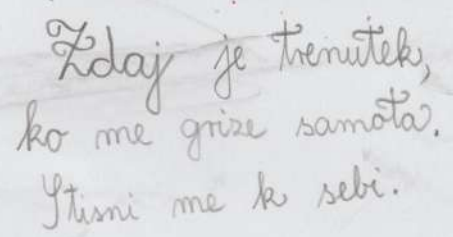 Zdaj je trenutek,
ko me grize samota.
Stisni me k sebi.